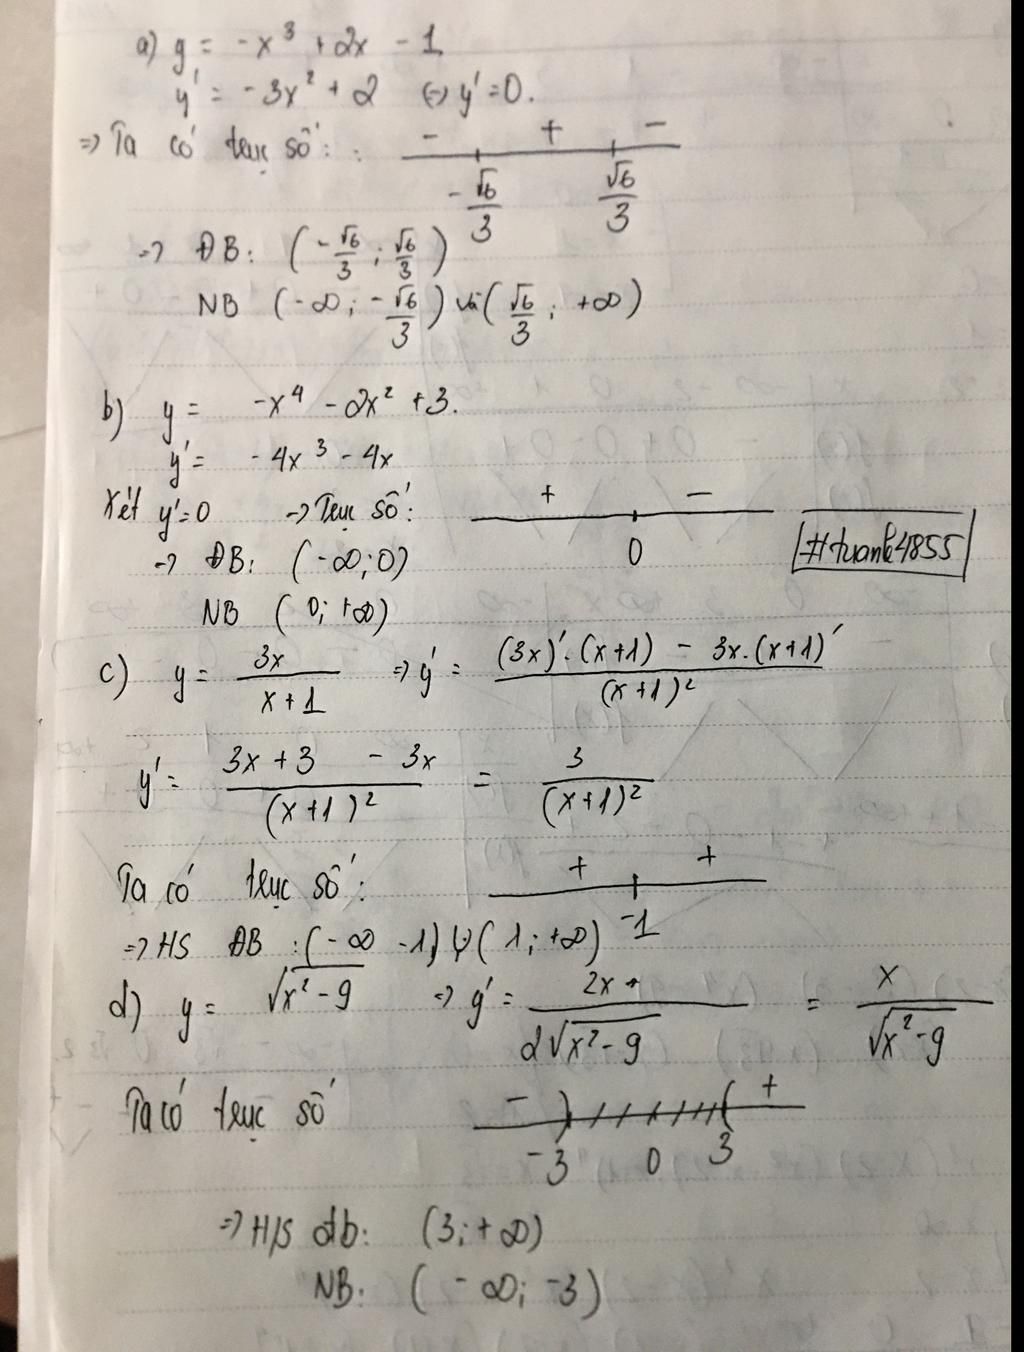 a) y = -x³ + 2x - 1
y' = -3x² + 2 (=) y' = 0.
=> Ta có trục số: : - + -
-√6/3 √6/3
=> ĐB: (-√6/3 ; √6/3)
NB (-∞; -√6/3) và (√6/3 ; +∞)
b) y = -x⁴ - 2x² + 3.
y' = -4x³ - 4x
Xét y' = 0 -> Trục số: + -
0
-> ĐB: (-∞; 0)
#tuank4855
NB (0; +∞)
c) y = 3x/(x+1) => y' = ((3x)'.(x+1) - 3x.(x+1)')/(x+1)²
y' = (3x+3 - 3x)/(x+1)² = 3/(x+1)²
Ta có trục số: + +
-1
=> HS ĐB : (-∞ -1) ∪ (1; +∞)
d) y = √(x² - 9) => y' = 2x/(2√(x² - 9)) = x/√(x² - 9)
Ta có trục số - ) ( +
-3 0 3
=> H/S đb: (3; +∞)
NB: (-∞; -3)